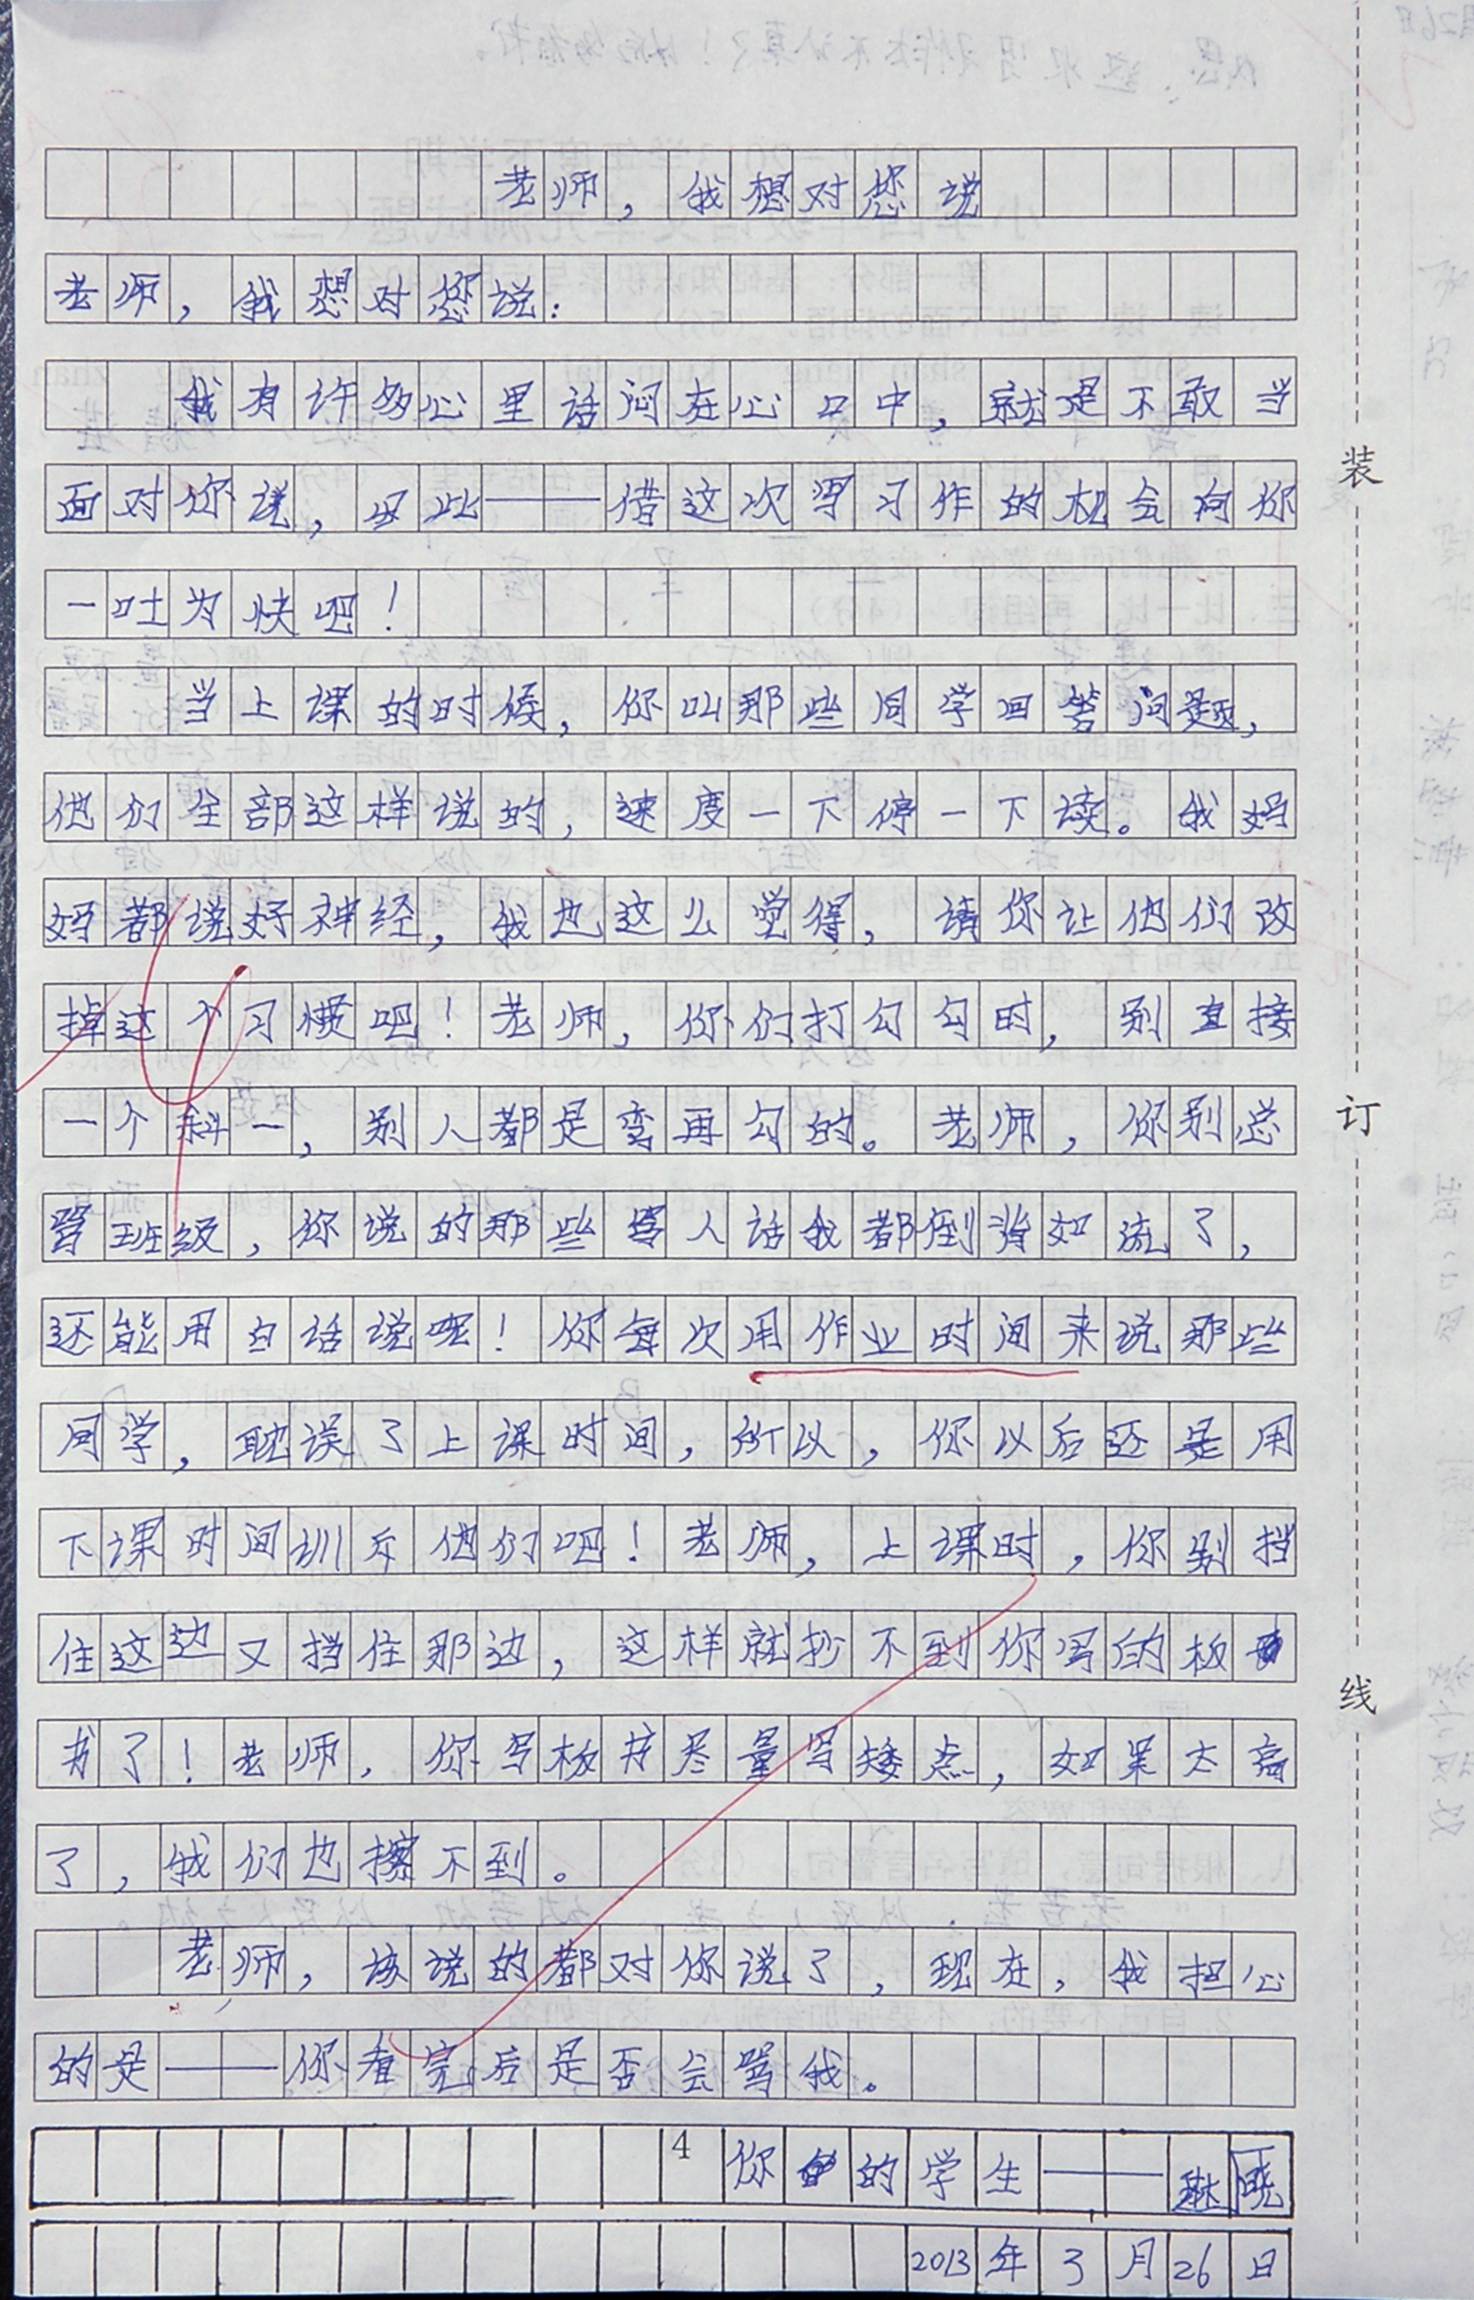 老师，我想对您说
老师，我想对您说：
我有许多心里话闷在心口中，就是不敢当
面对你说，因此——借这次写习作的机会向你
一吐为快吧！
当上课的时候，你叫那些同学回答问题，
他们全部这样说的，速度一下停一下读。我妈
妈都说好神经，我也这么觉得，请你让他们改
掉这个习惯吧！老师，你们打勾勾时，别直接
一个斜一，别人都是弯再勾的。老师，你别总
骂班级，你说的那些骂人话我都倒背如流了，
还能用白话说呢！你每次用作业时间来说那些
同学，耽误了上课时间，所以，你以后还是用
下课时间训斥他们吧！老师，上课时，你别挡
住这边又挡住那边，这样就抄不到你写的板
书了！老师，你写板书尽量写矮点，如果太高
了，我们也擦不到。
老师，该说的都对你说了，现在，我担心
的是——你看完后是否会骂我。
4
你的学生——
2013年3月26日
装
订
线